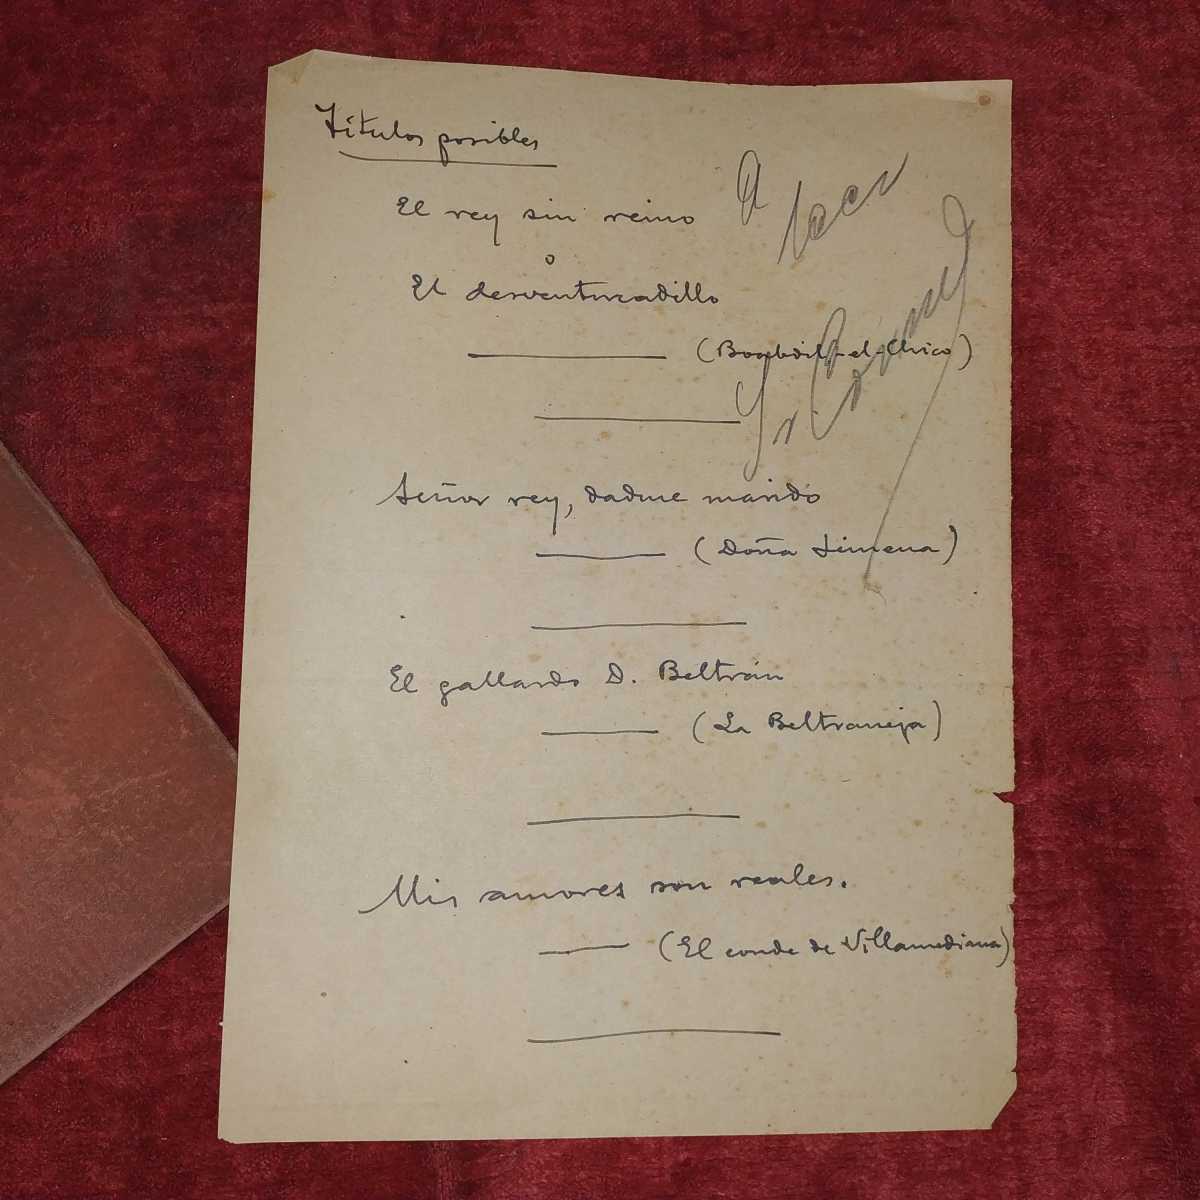 Títulos posibles
El rey sin reino
o
El desventuradillo
(Boabdil-el-Chico)
Señor rey, dadme marido
(Doña Jimena)
El gallardo D. Beltrán
(La Beltraneja)
Mis amores son reales.
(El conde de Villamediana)
A
Sr.